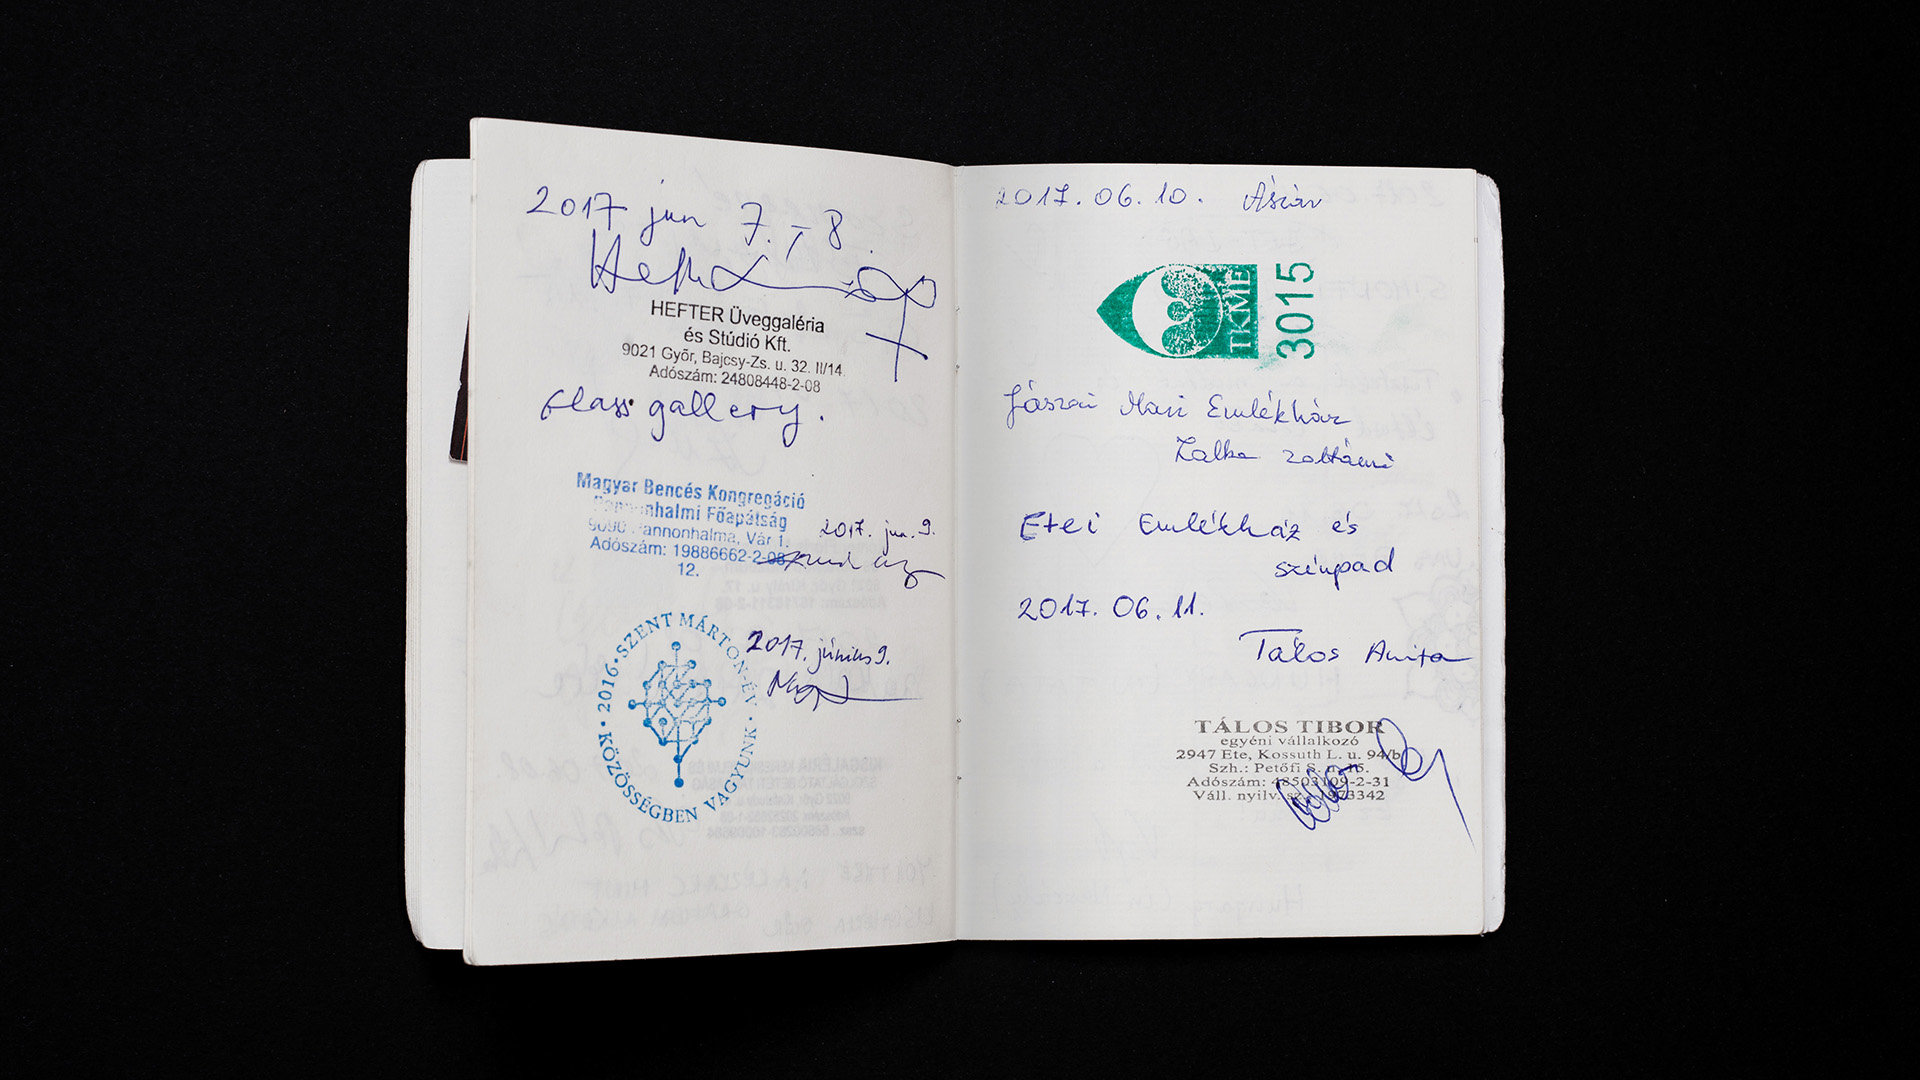 2017 jun 7. 8.
HEFTER Üveggaléria
és Stúdió Kft.
9021 Győr, Bajcsy-Zs. u. 32. II/14.
Adószám: 24808448-2-08
Glass gallery.
Magyar Bencés Kongregáció
Pannonhalmi Főapátság
9090 Pannonhalma, Vár 1.
Adószám: 19886662-2-08
12.
2017. jun. 9.
2016 • SZENT MÁRTON-ÉV • KÖZÖSSÉGBEN VAGYUNK •
2017. június 9.
2017. 06. 10. Ászár
TKME
3015
Jászai Mari Emlékház
Zalka Zoltánné
Etei Emlékház és
színpad
2017. 06. 11.
Tálos Anita
TÁLOS TIBOR
egyéni vállalkozó
2947 Ete, Kossuth L. u. 94/b
Szh.: Petőfi S. u. 15.
Adószám: 48503109-2-31
Váll. nyilv. sz.: 1973342